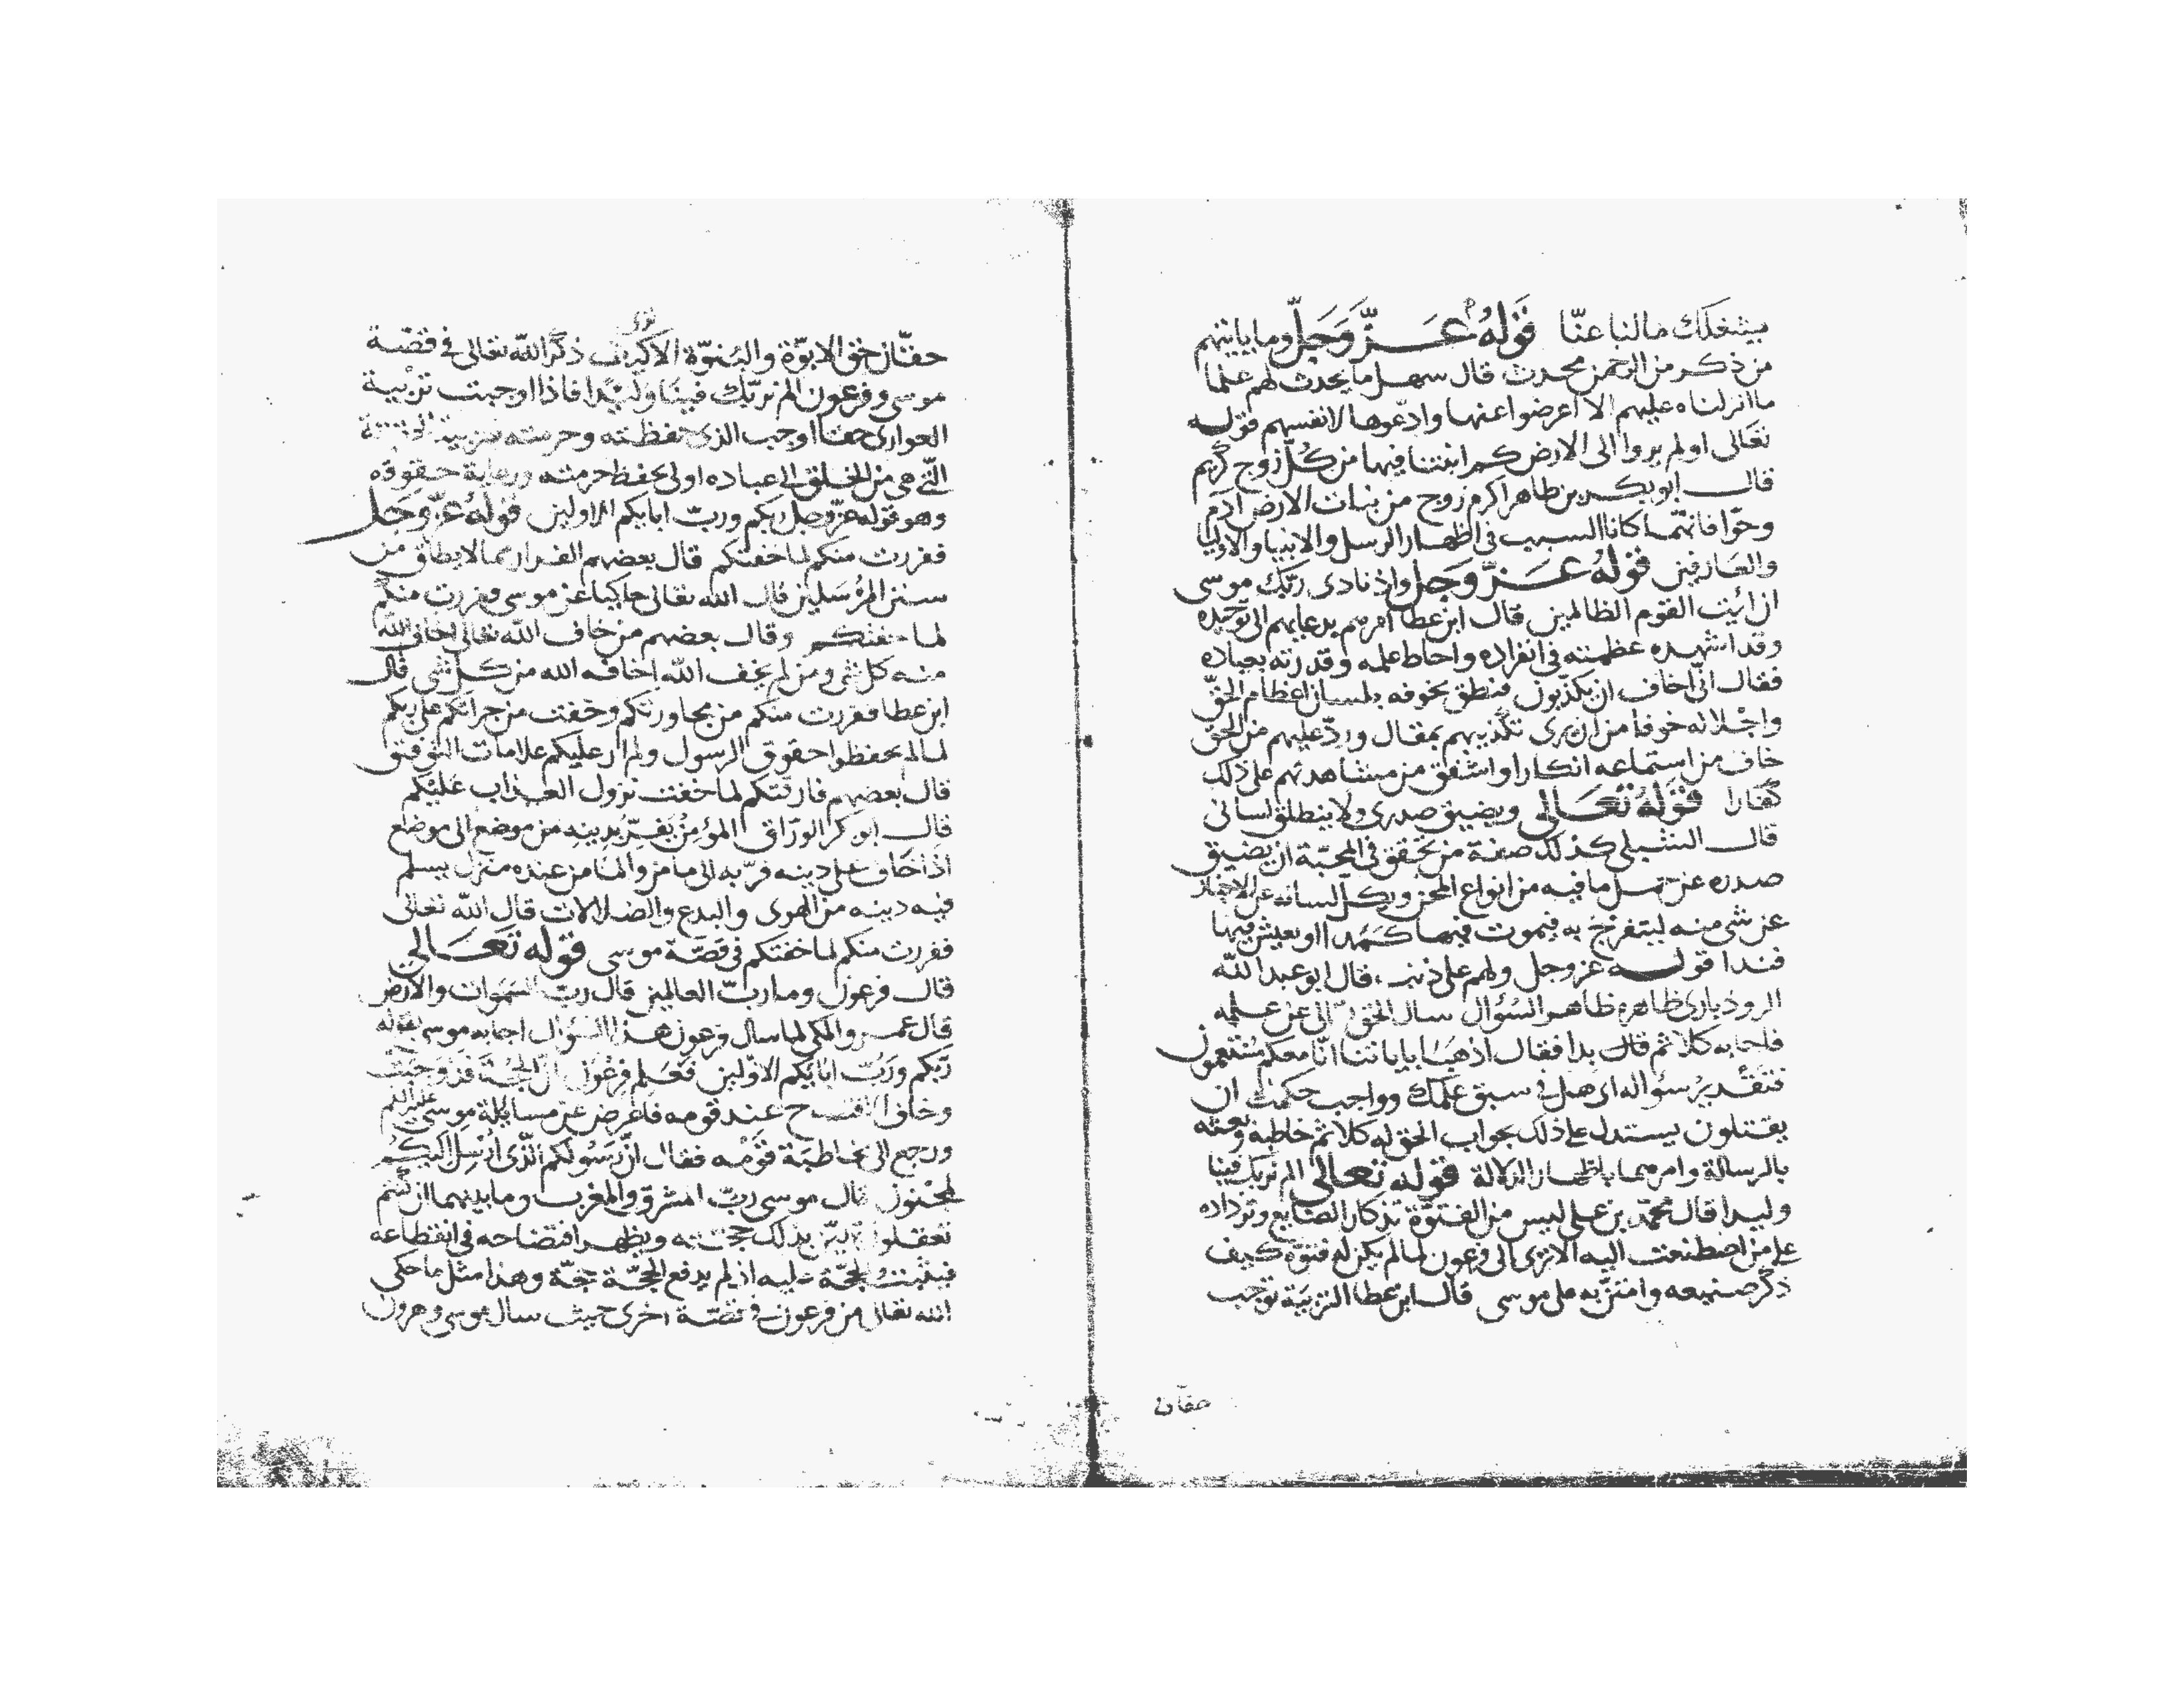 يشغلك مالنا عنّا قوله عزّ وجلّ وما ياتيهم
من ذكر من الرحمن محدث قال سهل ما يحدث لهم علما
ما انزلناه عليهم الا اعرضوا عنها وادّعوها لانفسهم قوله
تعالى اولم يروا الى الارض كم انبتنا فيها من كلّ زوج كريم
قال ابو بكر بن طاهر اكرم زوج من بنات الارض ادم
وحوّا فانهما كانا السبب في اظهار الرسل والانبيا والاوليا
والعارفين قوله عزّ وجل واذ نادى ربّك موسى
ان ائت القوم الظالمين قال ابن عطا امرهم بدعايهم الى توحيده
وقد اشهده عظمته في انفراده واحاط علمه وقدرته بعباده
فقال انّى اخاف ان يكذّبون فنطق بخوفه بلسان اعظام الحقّ
واجلاله خوفا من ان يرى تكذيبهم بمقال وردّ عليهم من الحق
خاف من استماعه انكارا واشفق من مشاهدتهم على ذلك
كفارا قوله تعالى ويضيق صدرى ولا ينطلق لسانى
قال الشبلى كذلك صفة من تحقق في المحبّة ان يضيق
صدره عن حمل ما فيه من انواع المحن ويكلّ لسانه عن الاخبار
عن شى منه ليتفرّج به فيموت فيها كمدا او يعيش فيها
فندا قوله عز وجل ولهم على ذنب قال ابو عبد الله
الرودبارى ظاهره ظاهر السؤال سال الحق عن علمه
فاجابه كلا ثم قال بدا فقال اذهبا باياتنا انّا معكم مستمعون
فتقدير سؤاله اى هل في سبق علمك وواجب حكمتك ان
يقتلون يستدل على ذلك بجواب الحق له كلا ثم خاطبه وبعثه
بالرسالة وامرهما باظهار الدلالة قوله تعالى الم نربك فينا
وليدا قال محمّد بن على ليس من الفتوّة تذكار الصنايع وترداده
على من اصطنعت اليه الا ترى الى فرعون لما لم يكن له فتوّة كيف
ذكر صنيعه وامتنّ به على موسى قال ابن عطا التربية توجب
حقّان
حقّان حق الابوّة والبنوّة الا ذكر الله تعالى في قصّة
موسى وفرعون الم نربّك فينا وليدا فاذا اوجبت تربية
العوارى حقا اوجب الذى حفظته وحرمته تربية
التّى هى من الخلق الى عباده اولى بحفظ حرمته ورعاية حقوقه
وهو قوله عزّ وجلّ ربكم وربّ ابايكم الاولين قوله عزّ وجل
ففررت منكم لما خفتكم قال بعضهم الفرار مما لا يطاق من
سنن المرسلين قال الله تعالى حاكيا عن موسى ففررت منكم
لما خفتكم وقال بعضهم من خاف الله تعالى اخاف الله
منه كل شى ومن لم يخف الله اخافه الله من كل شى قال
ابن عطا ففررت منكم من مجاورتكم وخفت من جراتكم على ربكم
لما لم تحفظوا حقوق الرسول ولم ار عليكم علامات التوفيق
قال بعضهم فارقتكم لما خفت نزول العذاب عليكم
قال ابو بكر الورّاق المؤمن يفرّ بدينه من موضع الى موضع
اذا خاف على دينه فرّ به الى مامن والمامن عنده منزل يسلم
فيه دينه من الهوى والبدع والضلالات قال الله تعالى
ففررت منكم لما خفتكم في قصّة موسى قوله تعالى
قال فرعون وما ربّ العالمين قال ربّ السموات والارض
قال عمرو المكى لما سال فرعون هذا السؤال اجابه موسى بقوله
ربّكم وربّ ابايكم الاوّلين فعلم فرعون انّ الحجّة قد وجبت
وخاف ان يفتضح عند قومه فاعرض عن مسايلة موسى عليه السلم
ورجع الى مخاطبة قومه فقال انّ رسولكم الّذى ارسل اليكم
لمجنون قال موسى ربّ المشرق والمغرب وما بينهما ان كنتم
تعقلون بذلك حجّته ويظهر افتضاحه في انقطاعه
فبقيت الحجّة عليه اذ لم يدفع الحجّة بحجّة وهذا مثل ما حكى
الله تعالى من فرعون في قصّة اخرى حيث سال موسى وهرون